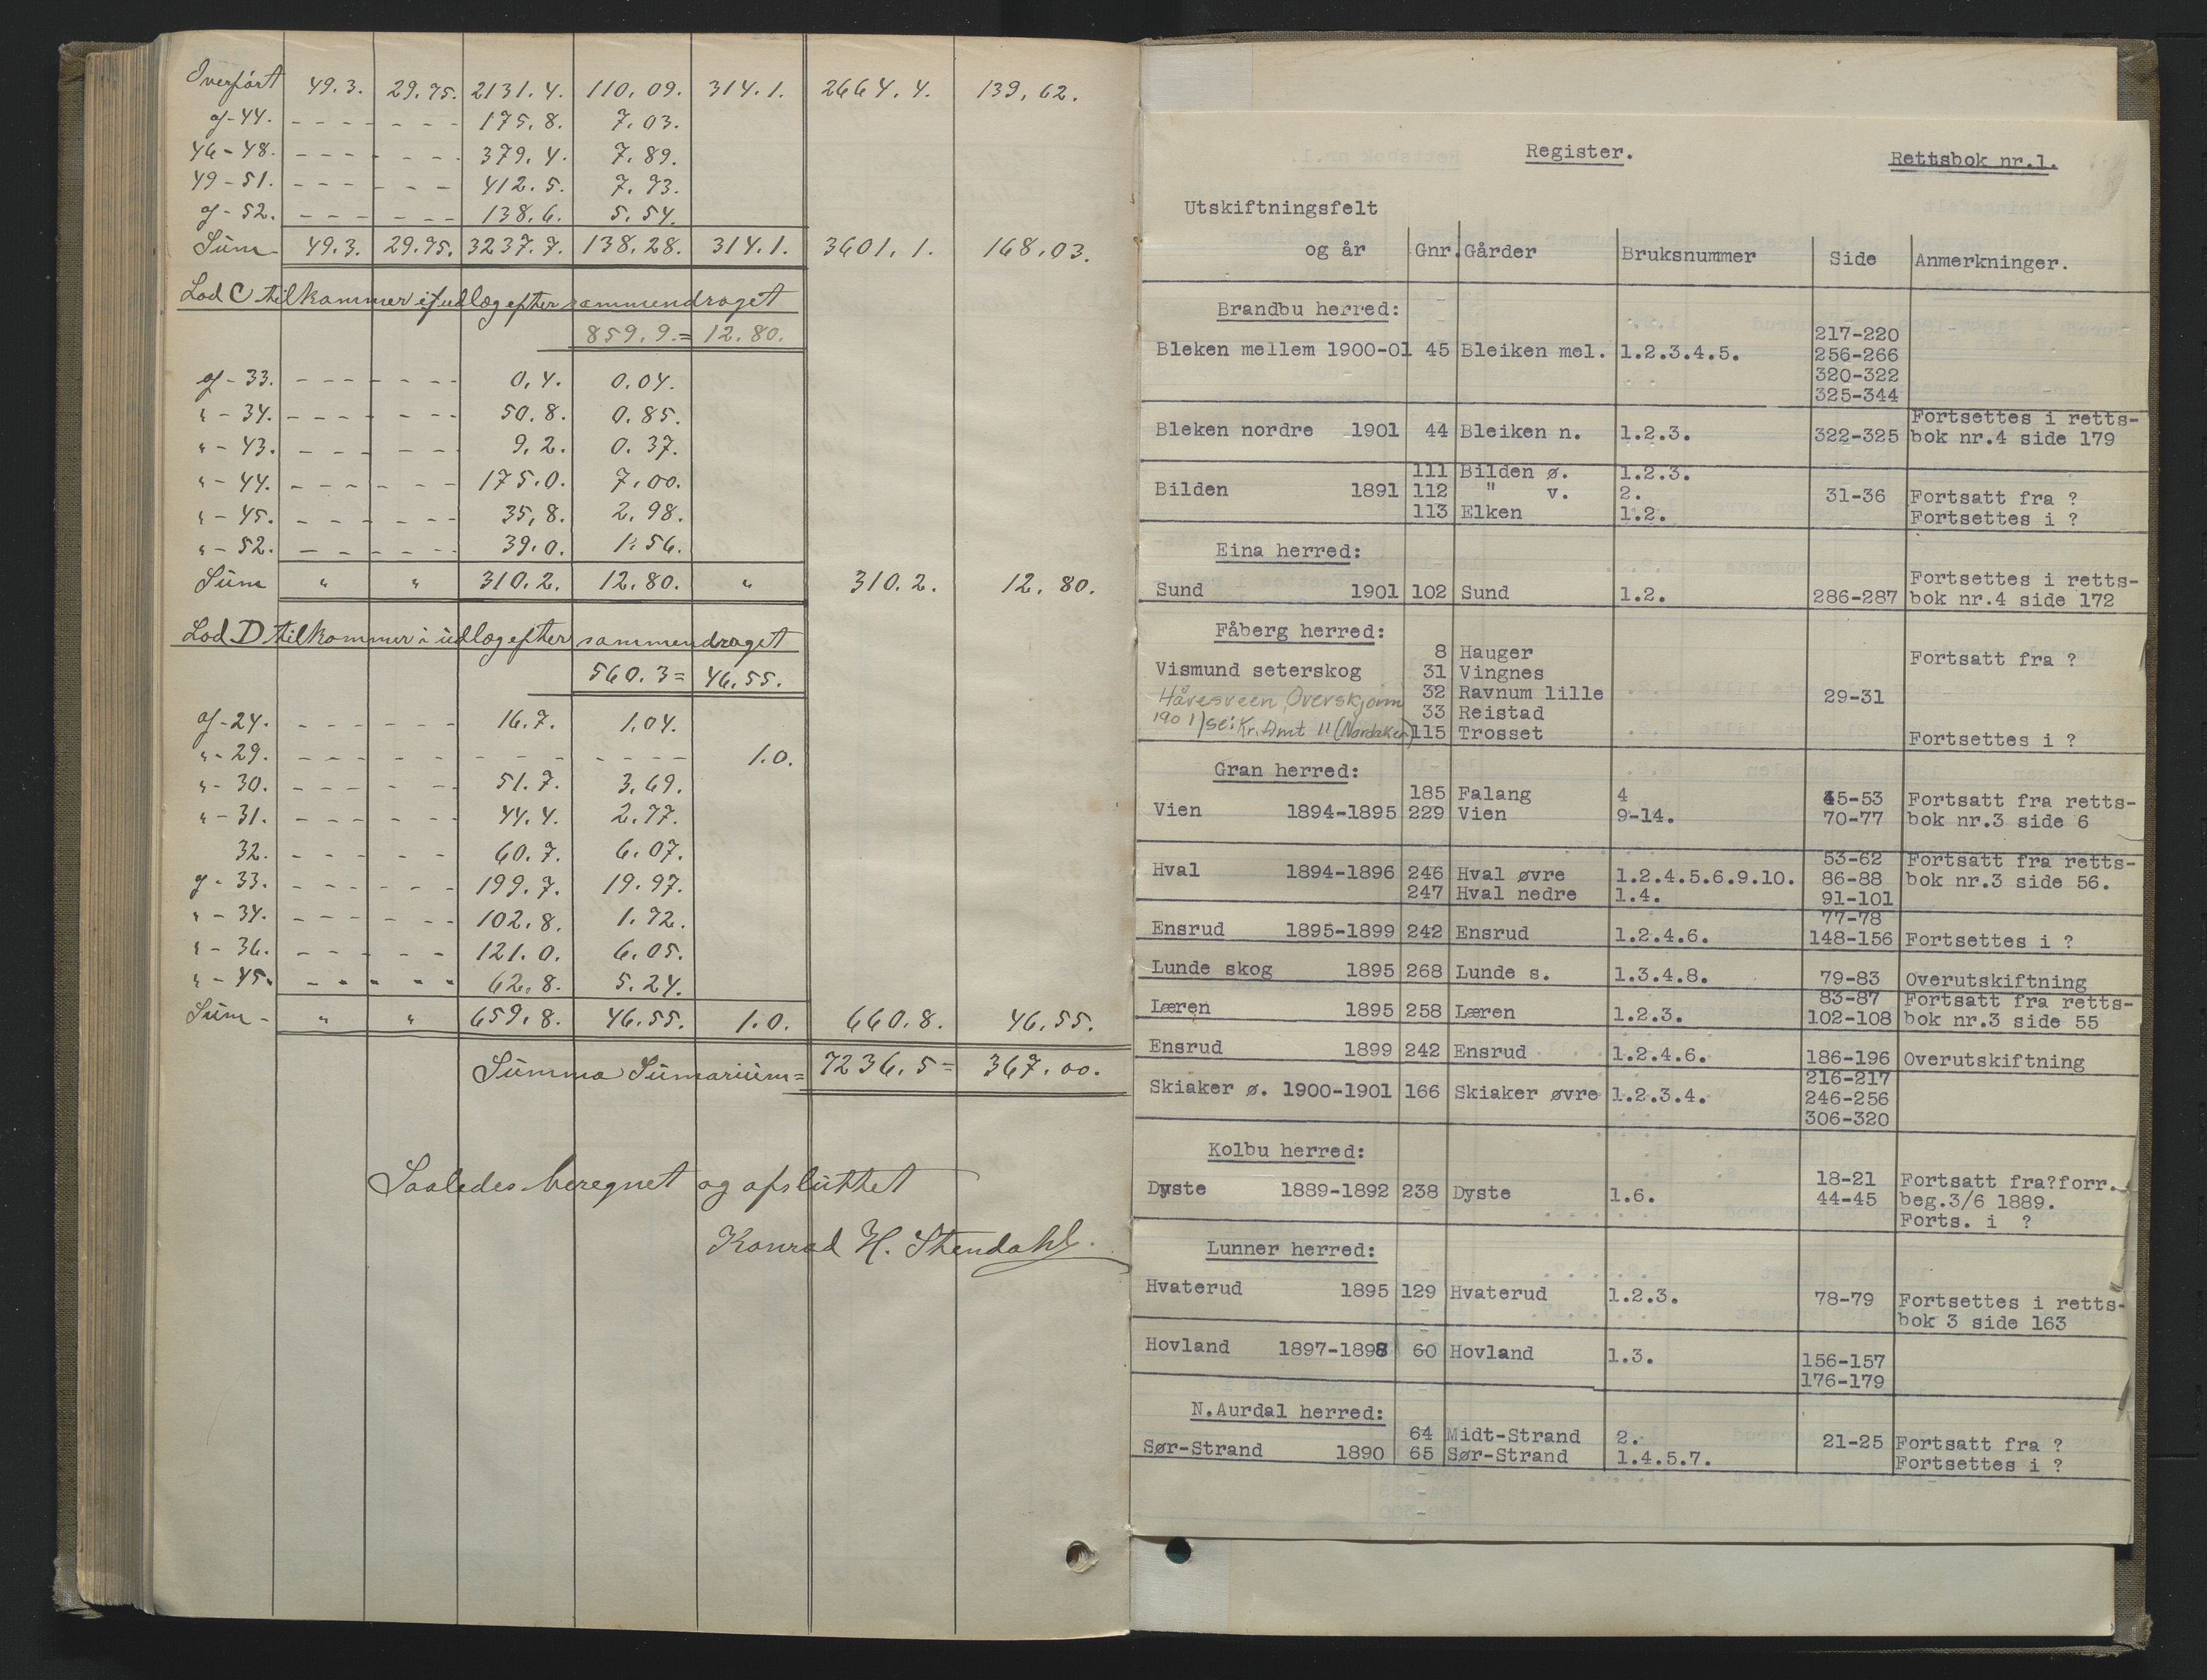 Overført 49.3. 29.75. 2131.4. 110.09. 314.1. 2664.4. 139.62.
af-44. - - - - - - - 175.8. 7.03.
46-48. - - - - - - - 379.4. 7.89.
49-51. - - - - - - 412.5. 7.73.
af-52. - - - - - - 138.6. 5.54.
Sum- 49.3. 29.75. 3237.7. 138.28. 314.1. 3601.1. 168.03.
Lod C tilkommer i udlæg efter sammendraget
859.9.= 12.80.
af-33. - - - - - - - 0,4. 0.04.
" - 34. - - - - - - - 50.8. 0.85.
" - 43. - - - - - - 9.2. 0.37.
" - 44. - - - - - - 175.0. 7.00.
" - 45. - - - - - - 35,8. 2.98.
" - 52. - - - - - - 39.0. 1.56.
Sum " " 310.2. 12.80. " 310.2. 12.80.
Lod D tilkommer i udlæg efter sammendraget
560.3= 46.55.
af-24. - - - - - - 16.7. 1.04.
" - 29. - - - - - - - - - - - - - 1.0.
" - 30. - - - - - 51.7. 3.69.
" - 31. - - - - - - 44.4. 2.77.
32. - - - - - 60.7. 6.07.
af-33. - - - - - - 199.7. 19.97.
" - 34. - - - - - 102.8. 1.72.
" - 36. - - - - - 121.0. 6.05.
" - 45. - - - - - 62.8. 5.24.
Sum- " " 659.8. 46.55. 1.0. 660.8. 46.55.
Summa Sumarium= 7236.5= 367.00.
Saaledes beregnet og afsluttet
Konrad H. Stendahl.
Register. Rettsbok nr.1.
Utskiftningsfelt
og år Gnr. Gårder Bruksnummer Side Anmerkninger.
Brandbu herred:
217-220
Bleken mellem 1900-01 45 Bleiken mel. 1.2.3.4.5. 256-266
320-322
325-344
Fortsettes i retts-
Bleken nordre 1901 44 Bleiken n. 1.2.3. 322-325 bok nr.4 side 179
111 Bilden ø. 1.2.3.
Bilden 1891 112 " v. 2. 31-36 Fortsatt fra ?
113 Elken 1.2. Fortsettes i ?
Eina herred:
Fortsettes i retts-
Sund 1901 102 Sund 1.2. 286-287 bok nr.4 side 172
Fåberg herred:
8 Hauger Fortsatt fra ?
Vismund seterskog 31 Vingnes
Håvesveen, Overskjønn 32 Ravnum lille 29-31
1901) se: Kr. Amt 11 (Nordaker) 33 Reistad
115 Trosset Fortsettes i ?
Gran herred:
185 Falang 4 45-53 Fortsatt fra retts-
Vien 1894-1895 229 Vien 9-14. 70-77 bok nr.3 side 6
53-62 Fortsatt fra retts-
Hval 1894-1896 246 Hval øvre 1.2.4.5.6.9.10. 86-88 bok nr.3 side 56.
247 Hval nedre 1.4. 91-101
77-78
Ensrud 1895-1899 242 Ensrud 1.2.4.6. 148-156 Fortsettes i ?
Lunde skog 1895 268 Lunde s. 1.3.4.8. 79-83 Overutskiftning
83-87 Fortsatt fra retts-
Læren 1895 258 Læren 1.2.3. 102-108 bok nr.3 side 55
Ensrud 1899 242 Ensrud 1.2.4.6. 186-196 Overutskiftning
216-217
Skiaker ø. 1900-1901 166 Skiaker øvre 1.2.3.4. 246-256
306-320
Kolbu herred:
18-21 Fortsatt fra?forr.
Dyste 1889-1892 238 Dyste 1.6. 44-45 beg.3/6 1889.
Forts. i ?
Lunner herred:
Hvaterud 1895 129 Hvaterud 1.2.3. 78-79 Fortsettes i retts-
bok 3 side 163
Hovland 1897-1898 60 Hovland 1.3. 156-157
176-179
N.Aurdal herred:
64 Midt-Strand 2. 21-25 Fortsatt fra ?
Sør-Strand 1890 65 Sør-Strand 1.4.5.7. Fortsettes i ?